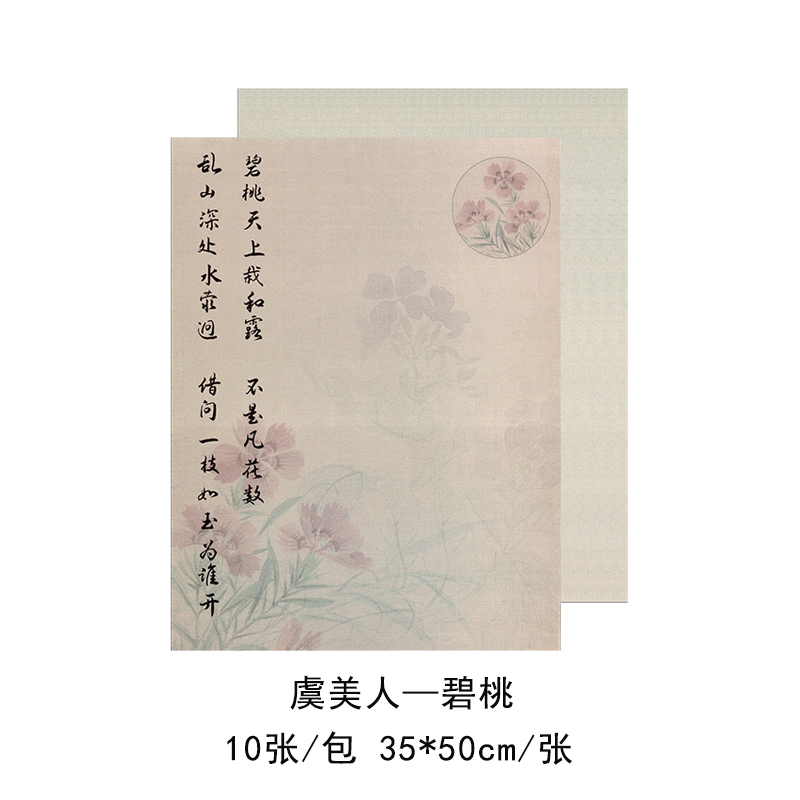 碧桃天上栽和露 不是凡花数
乱山深处水萦迴 借问一枝如玉为谁开
虞美人—碧桃
10张/包 35*50cm/张